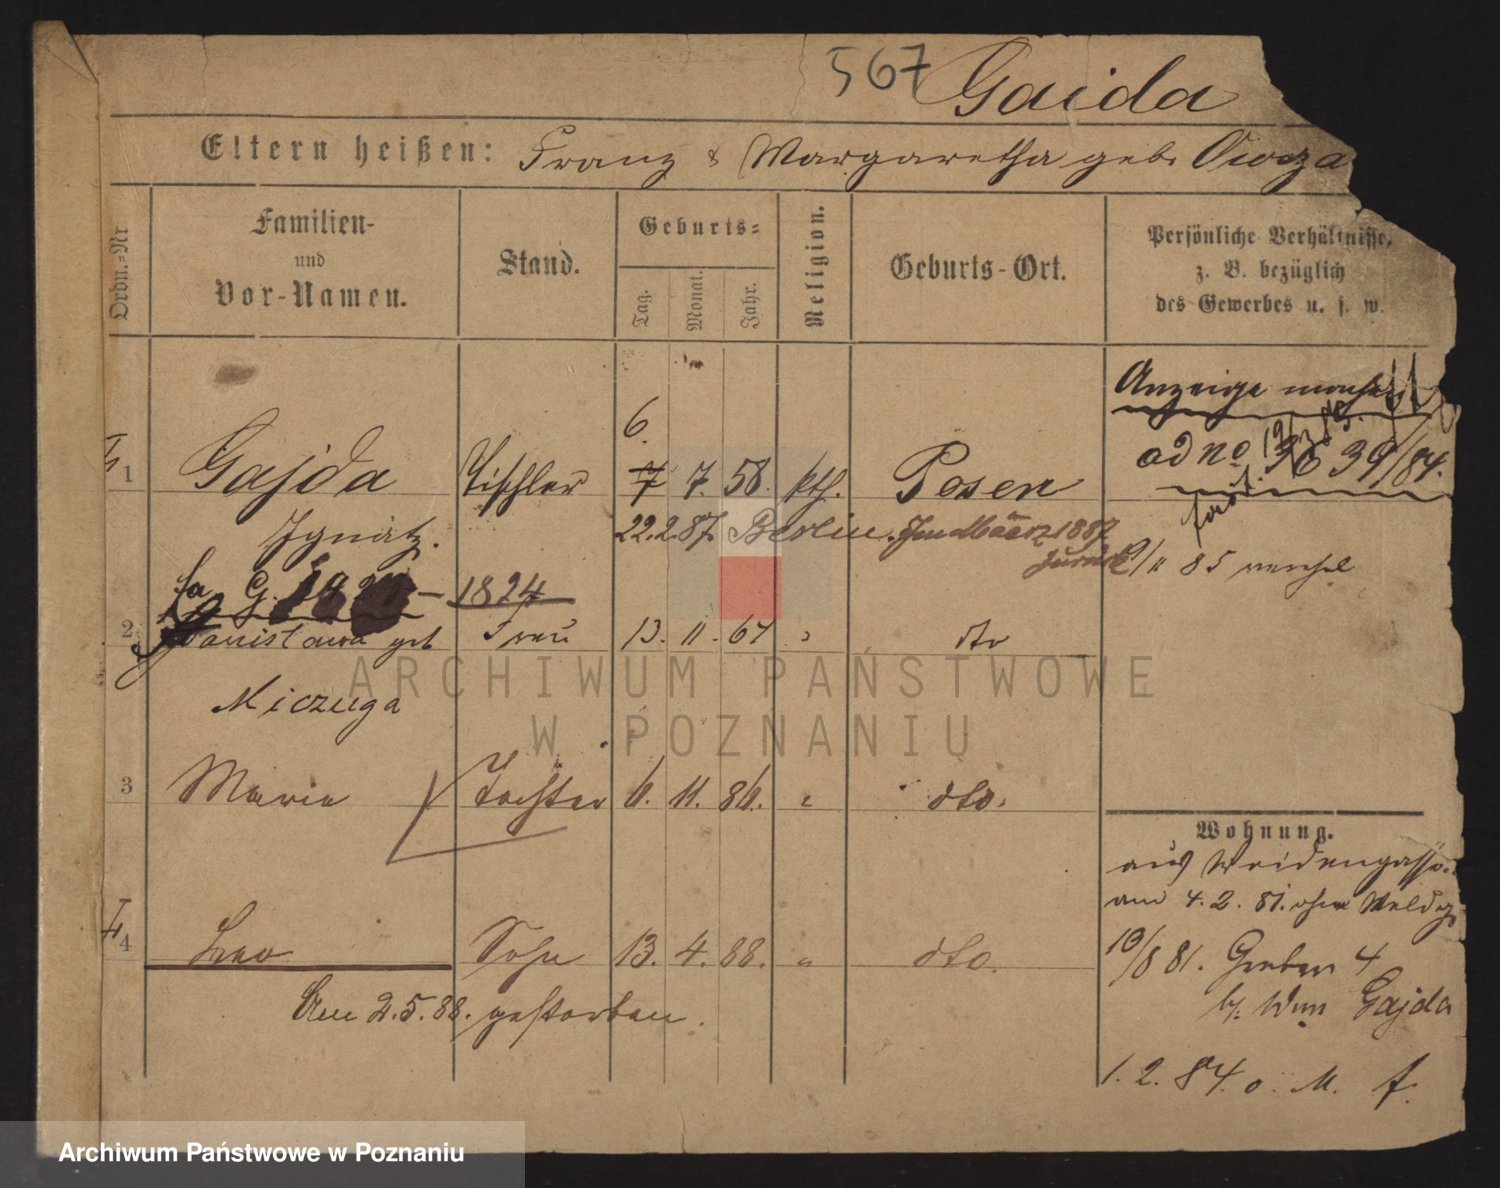 567 Gaida
Eltern heißen: Franz & Margaretha geb.
Ordn.-Nr
Familien-
und
Vor-Namen.
Stand.
Geburts-
Tag.
Monat.
Jahr.
Religion.
Geburts-Ort.
Persönliche Verhältnisse,
z. B. bezüglich
des Gewerbes u. s. w.
Anzeige
ad no 39/84.
6.
1 Gajda Tischler 7 7. 58. kth. Posen
Ignatz.
22.2.87. Berlin. 1887
zurück
85
G. 1824
2 Stanislawa geb Frau 13. 11. 61 dto
Miczuga
3 Marie Tochter 6. 11. 86. " dto.
Wohnung.
aus Weidengasse
am 4. 2. 81. ohne Meldg
4 Leo Sohn 13. 4. 88. " dto.
10/8 81. Graben 4
b. Wwe Gajda
Am 2.5.88. gestorben.
1. 2. 84. o. M. f.
ARCHIWUM PAŃSTWOWE
W POZNANIU
Archiwum Państwowe w Poznaniu